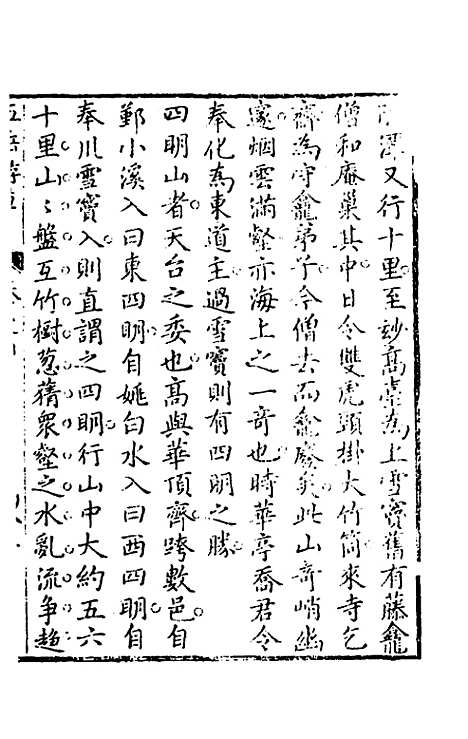 潭又行十里至妙高臺為上雪竇舊有藤龕
僧和庵巢其中日令雙虎頭掛大竹筒來寺乞
齋為守龕弟子今僧去而龕廢矣此山奇峭幽
邃烟雲滿壑亦海上之一奇也時華亭喬君令
奉化為東道主過雪竇則有四明之勝
四明山者天台之委也高與華頂齊跨數邑自
鄞小溪入曰東四明自姚白水入曰西四明自
奉川雪竇入則直謂之四明行山中大約五六
十里山山盤互竹樹葱蒨衆壑之水亂流争趨